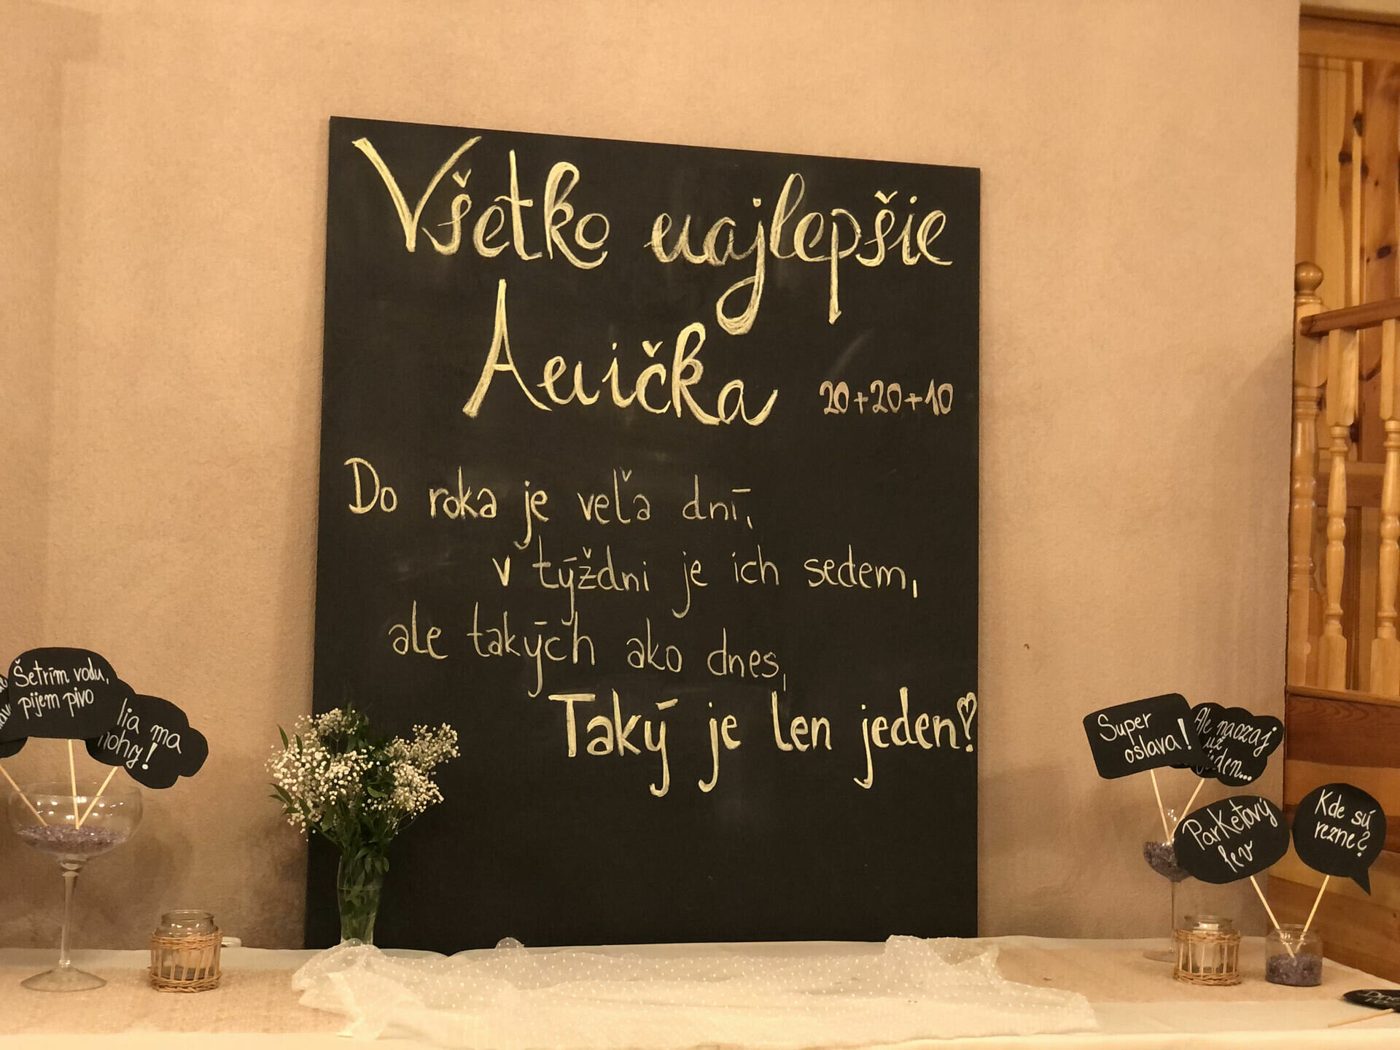 Všetko najlepšie
Anička 20+20+10
Do roka je veľa dní,
v týždni je ich sedem,
ale takých ako dnes,
Taký je len jeden!
Šetrím vodu,
pijem pivo
ma
nohy!
Super
oslava!
Ale naozaj
už
jeden...
Parketový
lev
Kde sú
rezne?